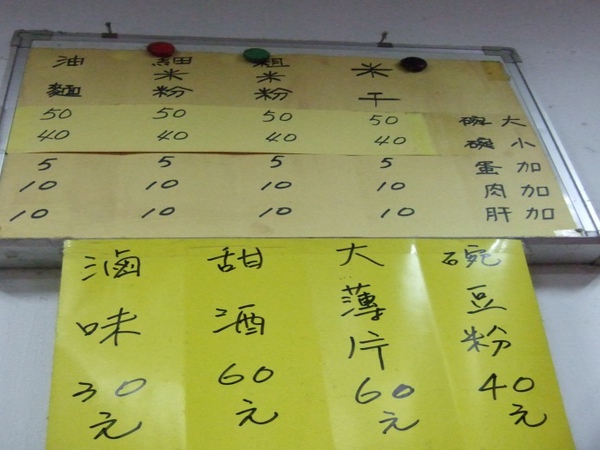 米干 粗米粉 細米粉 油麵
大碗 50 50 50 50
小碗 40 40 40 40
加蛋 5 5 5 5
加肉 10 10 10 10
加肝 10 10 10 10
碗豆粉 40元
大薄片 60元
甜酒 60元
滷味 30元